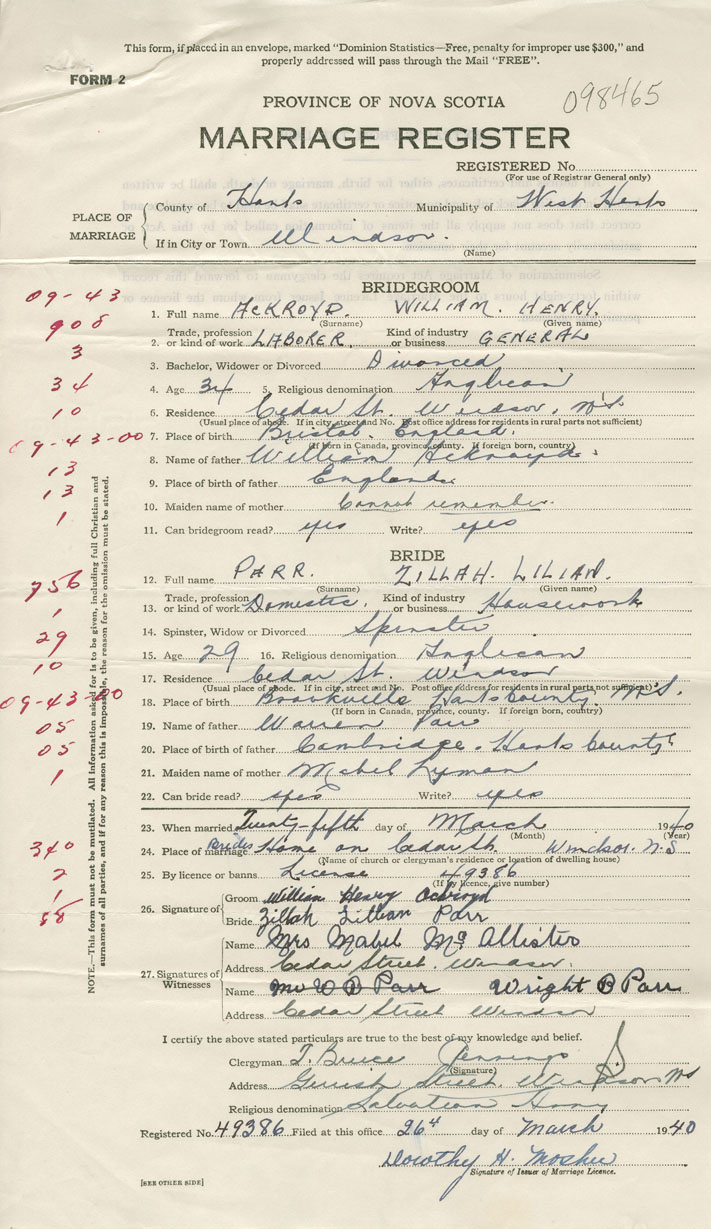 This form, if placed in an envelope, marked "Dominion Statistics—Free, penalty for improper use $300," and
properly addressed will pass through the Mail "FREE".
FORM 2
098465
PROVINCE OF NOVA SCOTIA
MARRIAGE REGISTER
REGISTERED No.
(For use of Registrar General only)
PLACE OF MARRIAGE
County of Hants Municipality of West Hants
If in City or Town Windsor.
(Name)
BRIDEGROOM
09-43
1. Full name ACKROYD. WILLIAM. HENRY.
(Surname) (Given name)
908
Trade, profession Kind of industry
2. or kind of work LABORER. or business GENERAL
3
3. Bachelor, Widower or Divorced Divorced
34
4. Age 34 5. Religious denomination Anglican
10
6. Residence Cedar St. Windsor, N.S.
(Usual place of abode. If in city, street and No. Post office address for residents in rural parts not sufficient)
09-43-00
7. Place of birth Bristol. England.
(If born in Canada, province, county. If foreign born, country)
13
8. Name of father William Ackroyd.
13
9. Place of birth of father England.
10. Maiden name of mother Cannot remember.
1
11. Can bridegroom read? yes Write? yes
BRIDE
756
12. Full name PARR. ZILLAH. LILIAN.
(Surname) (Given name)
1
Trade, profession Kind of industry
13. or kind of work Domestic. or business Housework
29
14. Spinster, Widow or Divorced Spinster
10
15. Age 29 16. Religious denomination Anglican
17. Residence Cedar St. Windsor
(Usual place of abode. If in city, street and No. Post office address for residents in rural parts not sufficient)
09-43-00
18. Place of birth Brookville Hants County. N.S.
(If born in Canada, province, county. If foreign born, country)
05
19. Name of father Warren Parr
05
20. Place of birth of father Cambridge. Hants County
1
21. Maiden name of mother Mabel Lyman
22. Can bride read? yes Write? yes
23. When married Twenty-fifth day of March 1940
(Month) (Year)
340
24. Place of marriage Brides Home on Cedar St. Windsor. N.S
(Name of church or clergyman's residence or location of dwelling house)
2
25. By licence or banns License 49386
(If by licence, give number)
1
58
26. Signature of
Groom William Henry Ackroyd
Bride Zillah Lillian Parr
27. Signatures of Witnesses
Name Mrs Mabel McAllister
Address Cedar Street. Windsor.
Name Mr W B Parr Wright B Parr
Address Cedar Street Windsor
NOTE.—This form must not be mutilated. All information asked for is to be given, including full Christian and
surnames of all parties, and if for any reason this is impossible, the reason for the omission must be stated.
I certify the above stated particulars are true to the best of my knowledge and belief.
Clergyman T. Bruce Jennings
(Signature)
Address Gerrish Street. Windsor NS
Religious denomination Salvation Army
Registered No. 49386 Filed at this office 26th day of March 1940
Dorothy H. Mosher
Signature of Issuer of Marriage Licence.
[SEE OTHER SIDE]